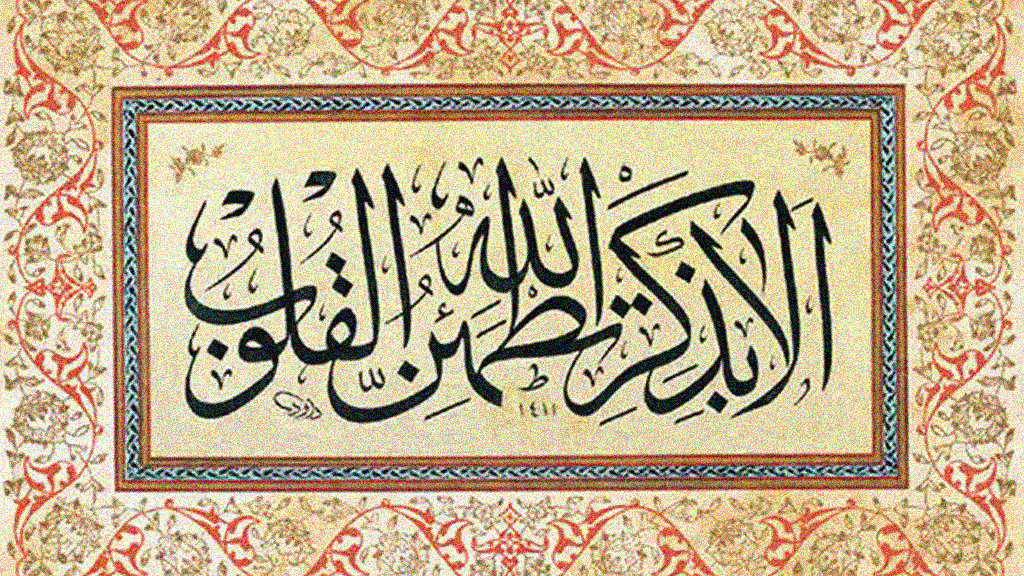 ألا بذكر الله تطمئن القلوب
١٤١١